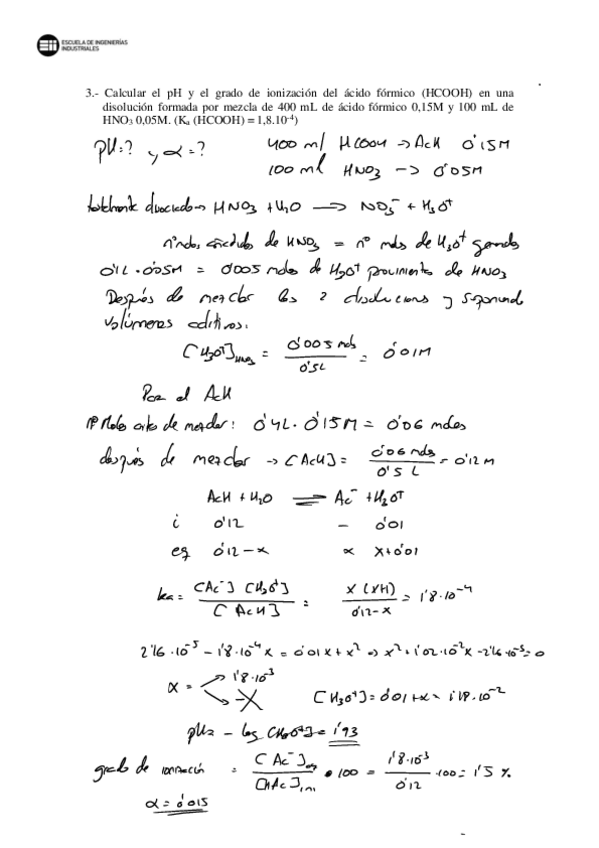 ESCUELA DE INGENIERÍAS
INDUSTRIALES
3.- Calcular el pH y el grado de ionización del ácido fórmico (HCOOH) en una
disolución formada por mezcla de 400 mL de ácido fórmico 0,15M y 100 mL de
HNO₃ 0,05M. (Kₐ (HCOOH) = 1,8.10⁻⁴)
pH=? y α=? 400 ml HCOOH → AcH 0'15M
100 ml HNO₃ → 0'05M
HNO₃ + H₂O → NO₃⁻ + H₃O⁺
de HNO₃ = nº moles de H₃O⁺
0'1L · 0'05M = 0'005 moles de H₃O⁺ de HNO₃
Después de mezclar las 2 disoluciones y suponiendo
volúmenes aditivos:
[H₃O⁺]HNO₃ = 0'005 mols / 0'5L = 0'01M
Por el AcH
de mezclar: 0'4L · 0'15M = 0'06 moles
después de mezclar → [AcH] = 0'06 mols / 0'5 L = 0'12 M
AcH + H₂O ⇌ Ac⁻ + H₃O⁺
i 0'12 – 0'01
eq 0'12-x x x+0'01
ka = [Ac⁻] [H₃O⁺] / [AcH] = / 0'12-x = 1'8·10⁻⁴
2'16·10⁻⁵ - 1'8·10⁻⁴x = 0'01x + x² ⇒ x² + 1'02·10⁻²x - 2'16·10⁻⁵ = 0
x = 1'8·10⁻³
[H₃O⁺] = 0'01 + x = 1'18·10⁻²
pH = - log [H₃O⁺] = 1'93
grado de ionización = [Ac⁻]eq / [HAc]ini · 100 = 1'8·10⁻³ / 0'12 · 100 = 1'5 %
α = 0'015